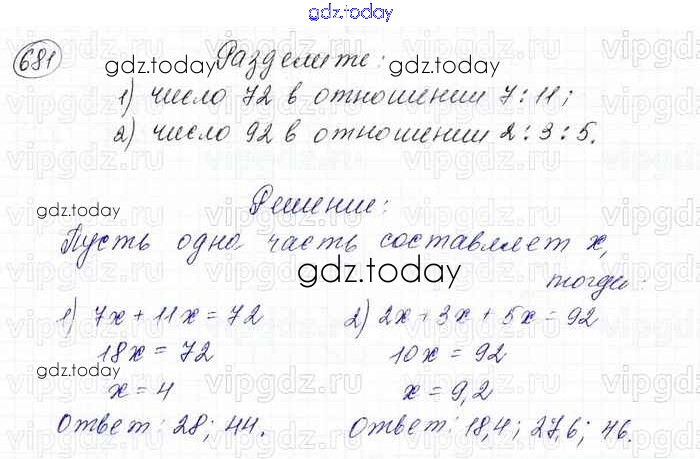 gdz.today
681 Разделите:
gdz.today gdz.today
1) число 72 в отношении 7:11;
2) число 92 в отношении 2:3:5.
gdz.today
Решение:
gdz.today
Пусть одна часть составляет x,
gdz.today
тогда:
1) 7x + 11x = 72
18x = 72
x = 4
Ответ: 28; 44.
gdz.today
2) 2x + 3x + 5x = 92
10x = 92
x = 9,2
Ответ: 18,4; 27,6; 46.
gdz.today
vipgdz.ru